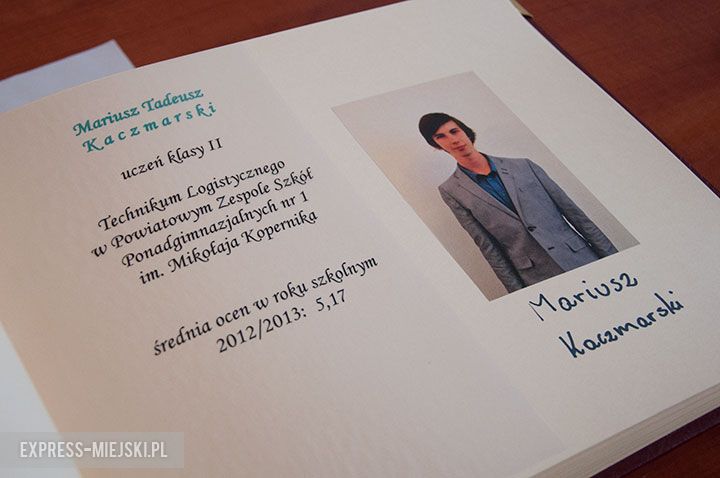 Mariusz Tadeusz
Kaczmarski
uczeń klasy II
Technikum Logistycznego
w Powiatowym Zespole Szkół
Ponadgimnazjalnych nr 1
im. Mikołaja Kopernika
średnia ocen w roku szkolnym
2012/2013: 5,17
Mariusz
Kaczmarski
EXPRESS-MIEJSKI.PL